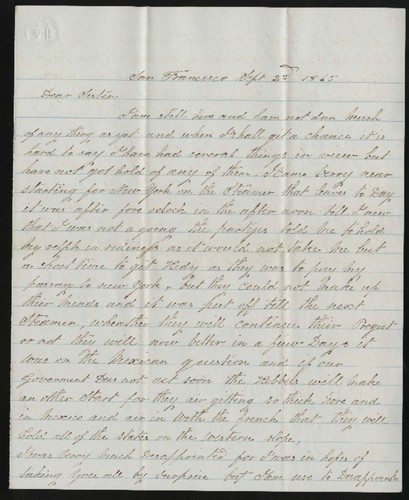 San Francisco Sept 2nd 1865
Dear Sister
I am still here and have not dun much
of any thing as yet and when I shall get a chance it is
hard to say I have had several things in view but
have not got hold of any of them I came verry near
starting for New York in the Steamer that leave to Day
it was after fore oclock in the after noon till I new
that I was not a going the parties told me to hold
my self in rediness as it would not take me but
a short time to get Redy as they was to pay my
passage to new York, but they could not make up
their minds and it was put off till the next
Steamer, wheather they will continue their Project
or not they will now better in a few Days it
was on the Mexican question and if our
Government Dus not act soon the Rebbels will make
an other Start for they air gitting so thick here and
in Mexico and air in with the french that they will
hold all of the states on the western slope,
I was verry much Disapointed for I was in hopes of
taking you all by surprise but I am use to Disapoint